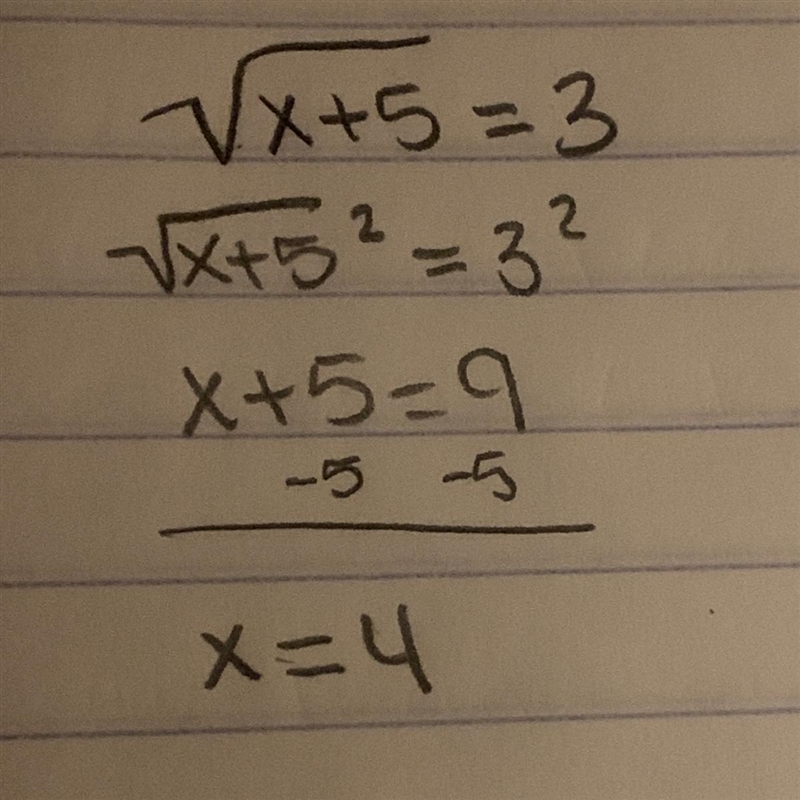 √x+5 = 3
√x+5² = 3²
x+5=9
-5 -5
x=4